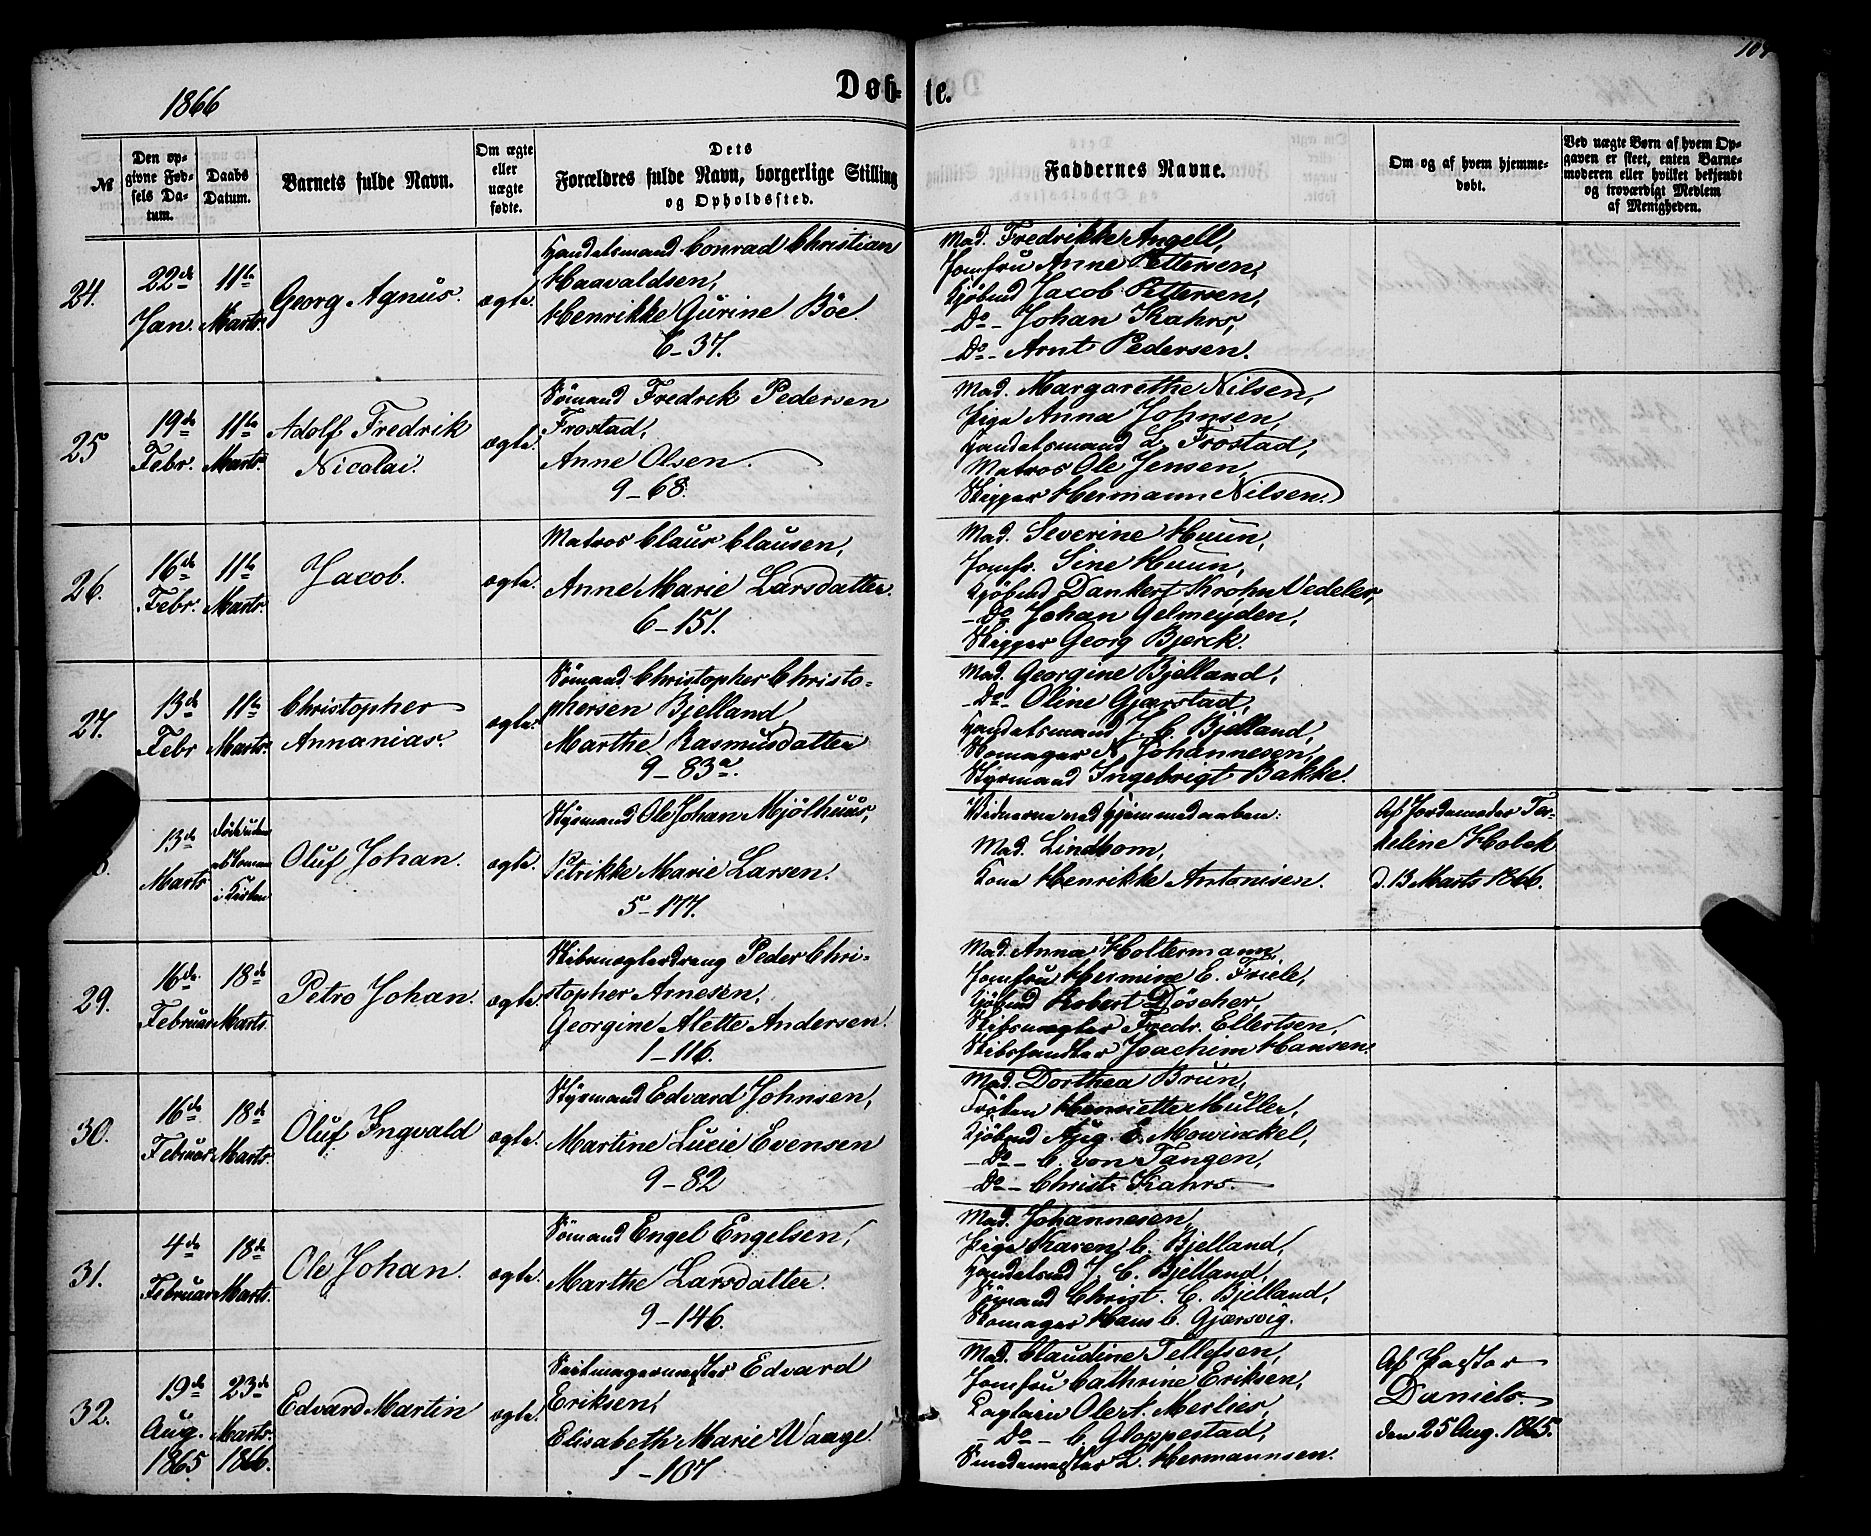 1866
Døb- te.
№
Den op-
givne Fød-
sels Da-
tum.
Daabs
Datum.
Barnets fulde Navn.
Om ægte
eller
uægte
fødte.
Dets
Forældres fulde Navn, borgerlige Stilling
og Opholdssted.
Faddernes Navne.
Om og af hvem hjemme-
døbt.
Ved uægte Børn af hvem Op-
gaven er skeet, enten Barne-
moderen eller hvilket bekjendt
og troværdigt Medlem
af Menigheden.
24.
22de
Jan.
11te
Marts.
Georg Agnus.
ægte.
Handelsmand Conrad Christian
Haavaldsen,
Henrikke Gurine Böe.
6-37.
Mad. Fredrikke Angell,
Jomfru Anne Pettersen,
Kjöbmd Jacob Pettersen,
-Do- Johan Kahrs,
-Do- Arnt Pedersen.
25
19de
Febr.
11te
Marts.
Adolf Fredrik
Nicolai.
ægte.
Sömand Fredrik Pedersen
Frostad,
Anne Olsen.
9-68.
Mad. Margarethe Nilsen,
Pige Anna Johnsen,
Handelsmand L. Frostad,
Matros Ole Jensen,
Skipper Hermann Nilsen.
26.
16de
Febr.
11te
Marts.
Jacob.
ægte.
Matros Claus Clausen,
Anne Marie Larsdatter.
6-151.
Mad. Severine Huun,
Jomfr. Sine Huun,
Kjöbmd Dankert Krohn Vedeler,
-Do Johan Gelmeyden,
Skipper Georg Bjerck.
27.
13de
Febr
11te
Marts.
Christopher
Annanias.
ægte.
Sömand Christopher Christo-
phersen Bjelland,
Marthe Rasmusdatter
9-83a.
Mad. Georgine Bjelland,
-Do- Oline Gjerstad,
Handelsmand J. C. Bjelland,
Skomager N. Johannesen,
Styrmand Ingebrigt Bakke.
13de
Marts
Död uden
at komme
i Kirken
Oluf Johan.
ægte.
Styrmand Ole Johan Mjölhuus,
Petrikke Marie Larsen.
5-177.
Vidnerne ved Hjemmedaaben:
Mad. Lindbom,
Kone Henrikke Antonisen.
Af Jordemoder
d. 13 Marts 1866.
29.
16de
Februar
18de
Marts.
Petro Johan.
ægte.
Skibsmæglerdreng Peder Chri-
stopher Arnesen,
Georgine Alette Andersen.
1-116.
Mad. Anna Holtermann,
Jomfru Hermine E. Friele,
Kjöbmd Robert Döscher,
Skibsmægler Fredr. Ellertsen,
Skibshandler Joachim Hansen.
30.
16de
Februar
18de
Marts.
Oluf Ingvald
ægte.
Styrmand Edvard Johnsen,
Martine Lucie Evensen
9-82
Mad. Dorthea Brun,
Fröken Henriette Müller,
Kjöbmd Aug. E. Mowinckel,
-Do- C. von Tangen,
-Do- Christ. Kahrs.
31.
4de
Februar
18de
Marts.
Ole Johan.
ægte.
Sömand Engel Engelsen,
Marthe Larsdatter.
9-146.
Mad. Johannesen,
Pige Karen C. Bjelland,
Handelsmd J. C. Bjelland,
Sömand Christ. C. Bjelland,
Skomager Hans C. Gjærsvig.
32.
19de
Aug.
1865
23de
Marts.
1866.
Edvard Martin
ægte.
Seilmagermester Edvard
Eriksen,
Elisabeth Marie Waage.
1-107
Mad. Claudine Tellefsen,
Jomfru Cathrine Eriksen,
Capitain Ole A. Merlies,
-Do- C. Gloppestad,
L. Hermannsen.
Af Pastor
Daniels.
den 25 Aug. 1865.